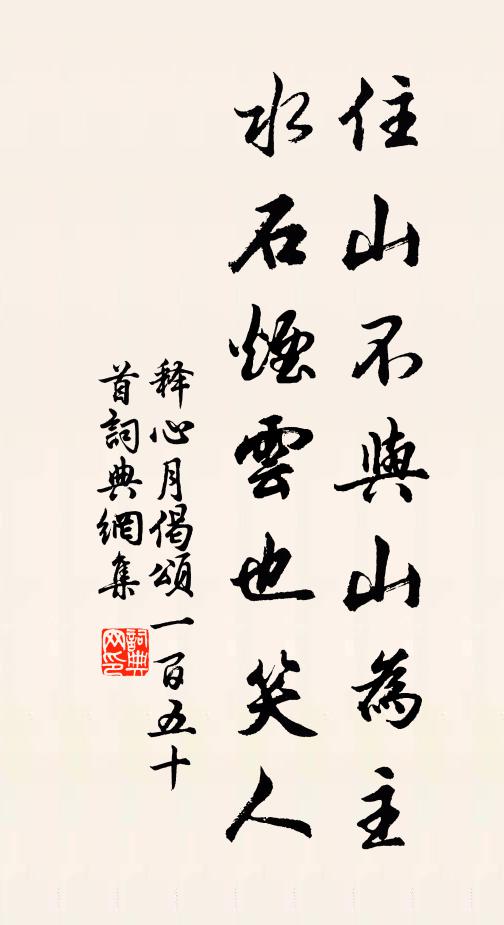 住山不與山為主
水石煙雲也笑人
释心月偈頌一百五十
首詞典網集
詞典
网印